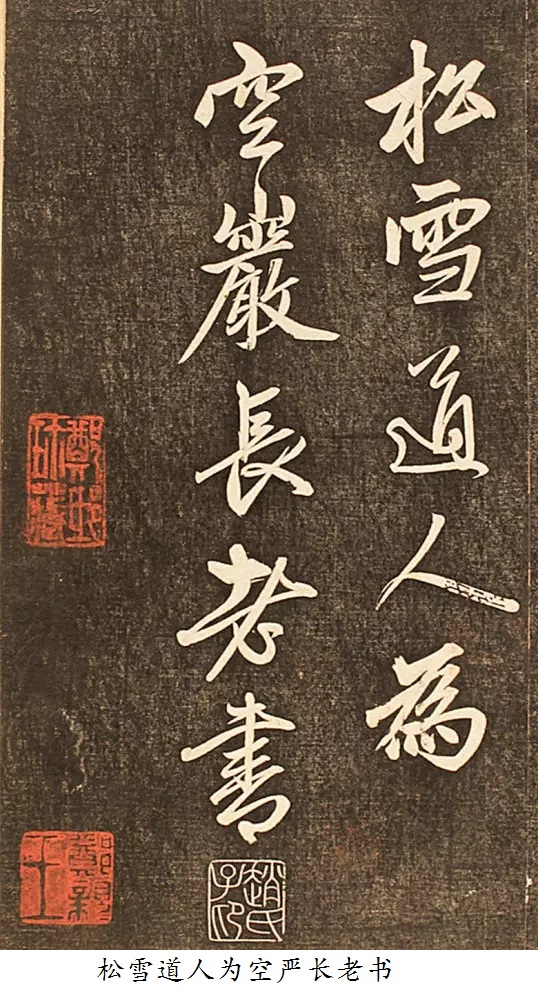 松雪道人為
空巖長老書
趙氏子印
松雪道人为空严长老书